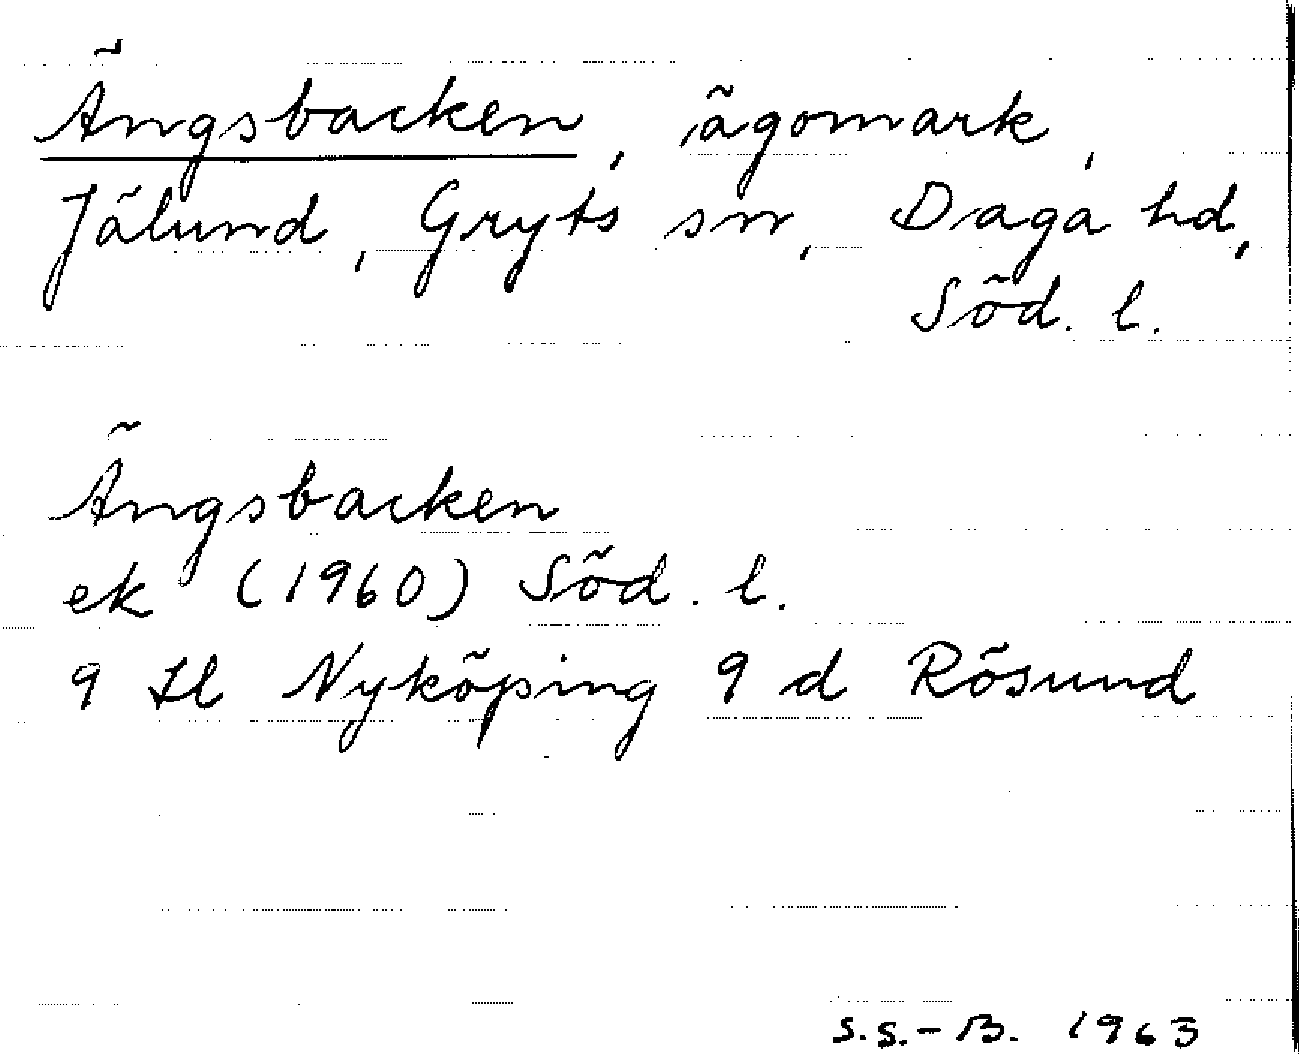 Ängsbacken, ägomark,
Jälund, Gryts sn, Daga hd,
Söd. l.
Ängsbacken
ek (1960) Söd. l.
9 H Nyköping 9 d Rösund
S.S.-B. 1963